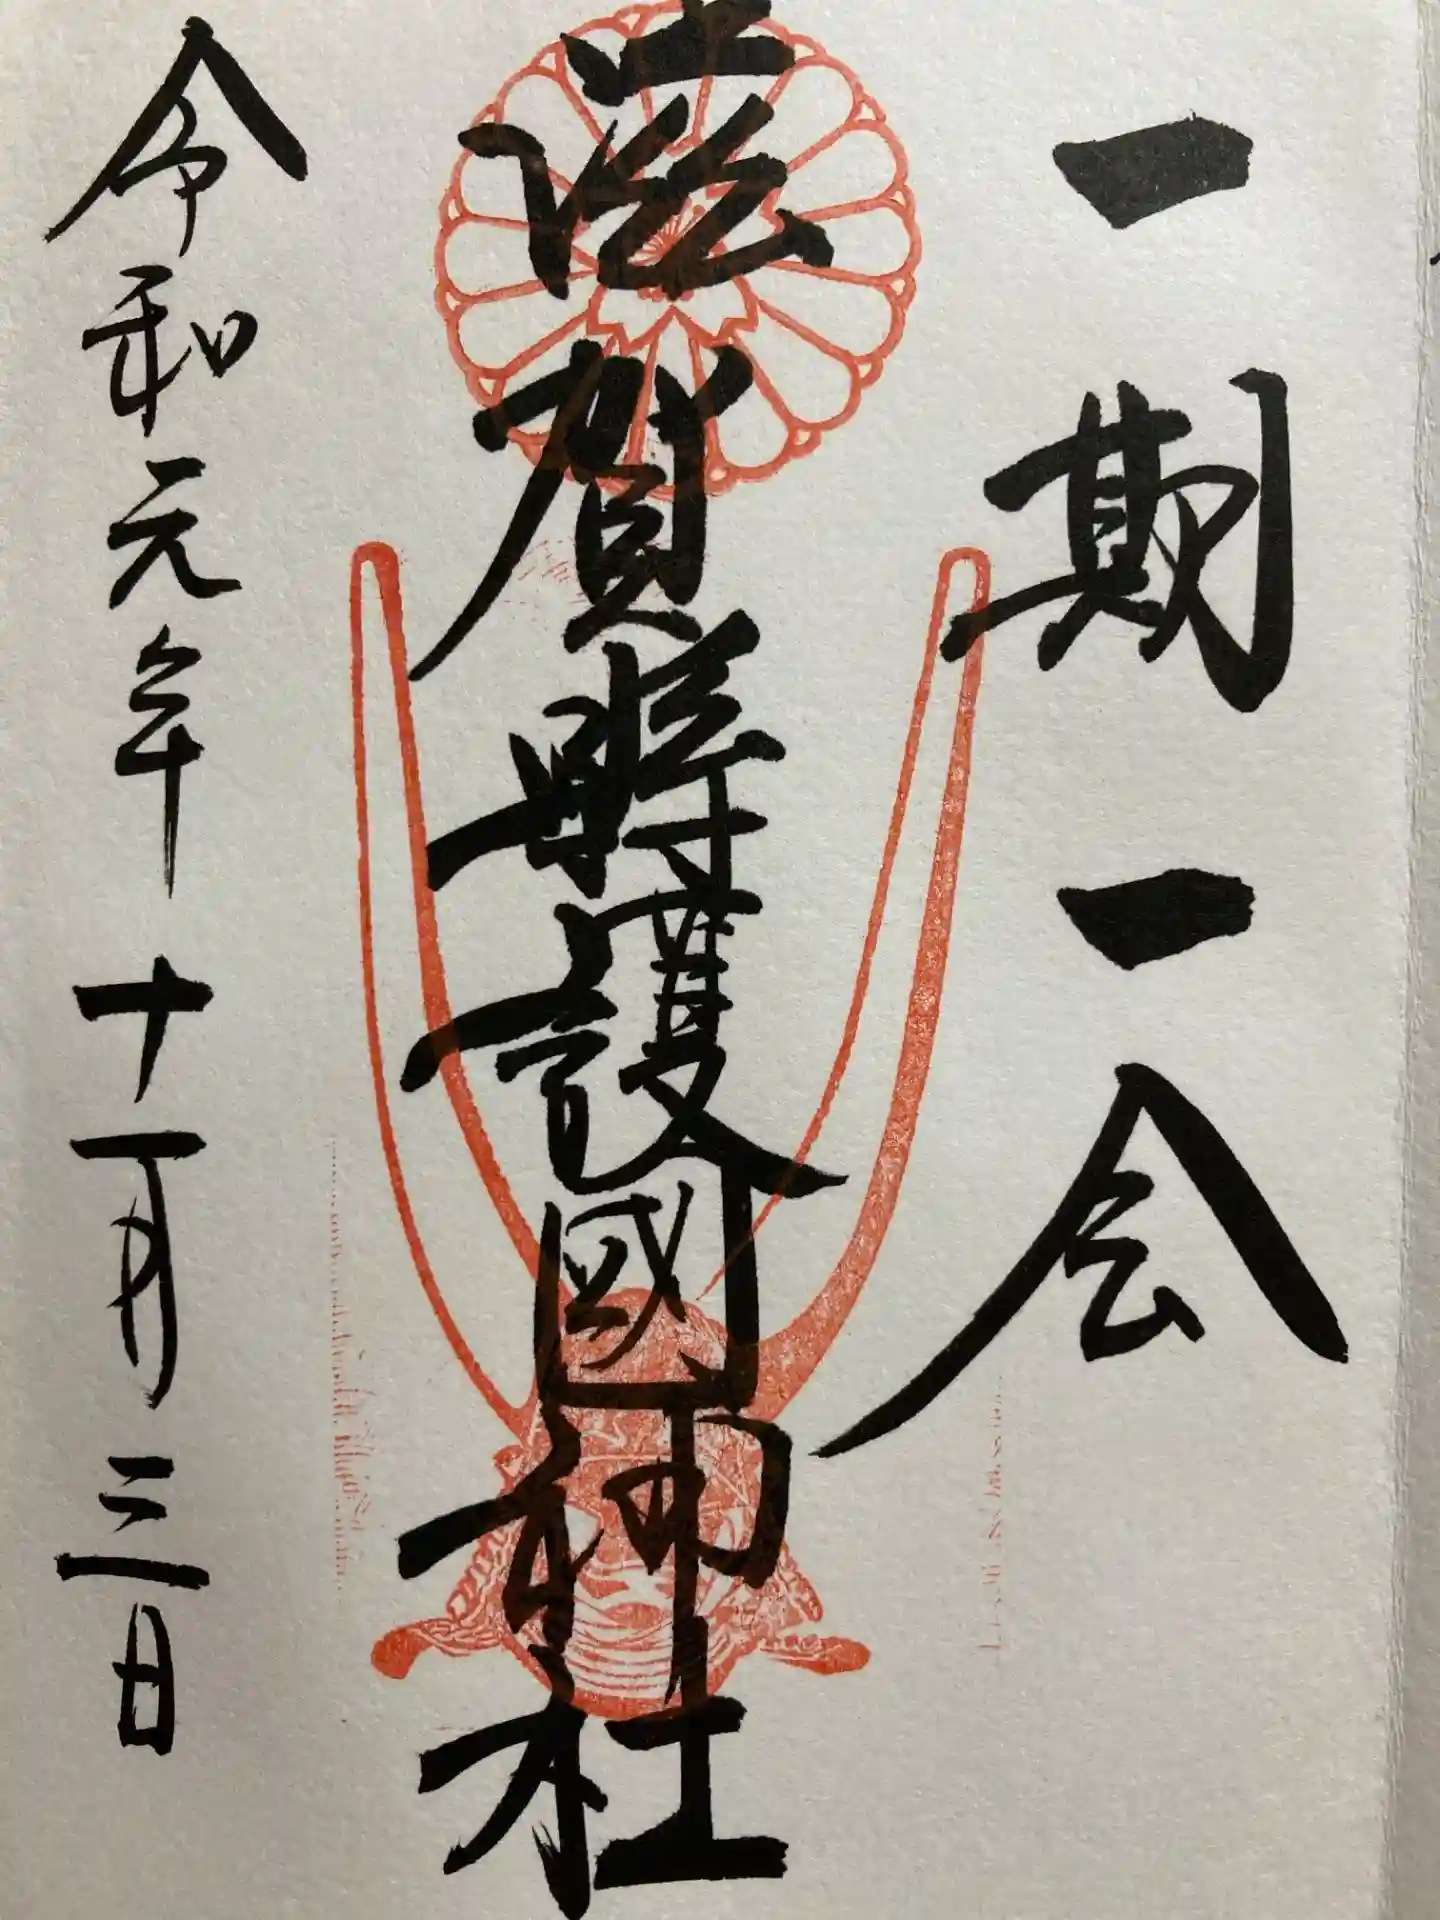 一期一会
滋賀縣護國神社
令和元年十一月三日